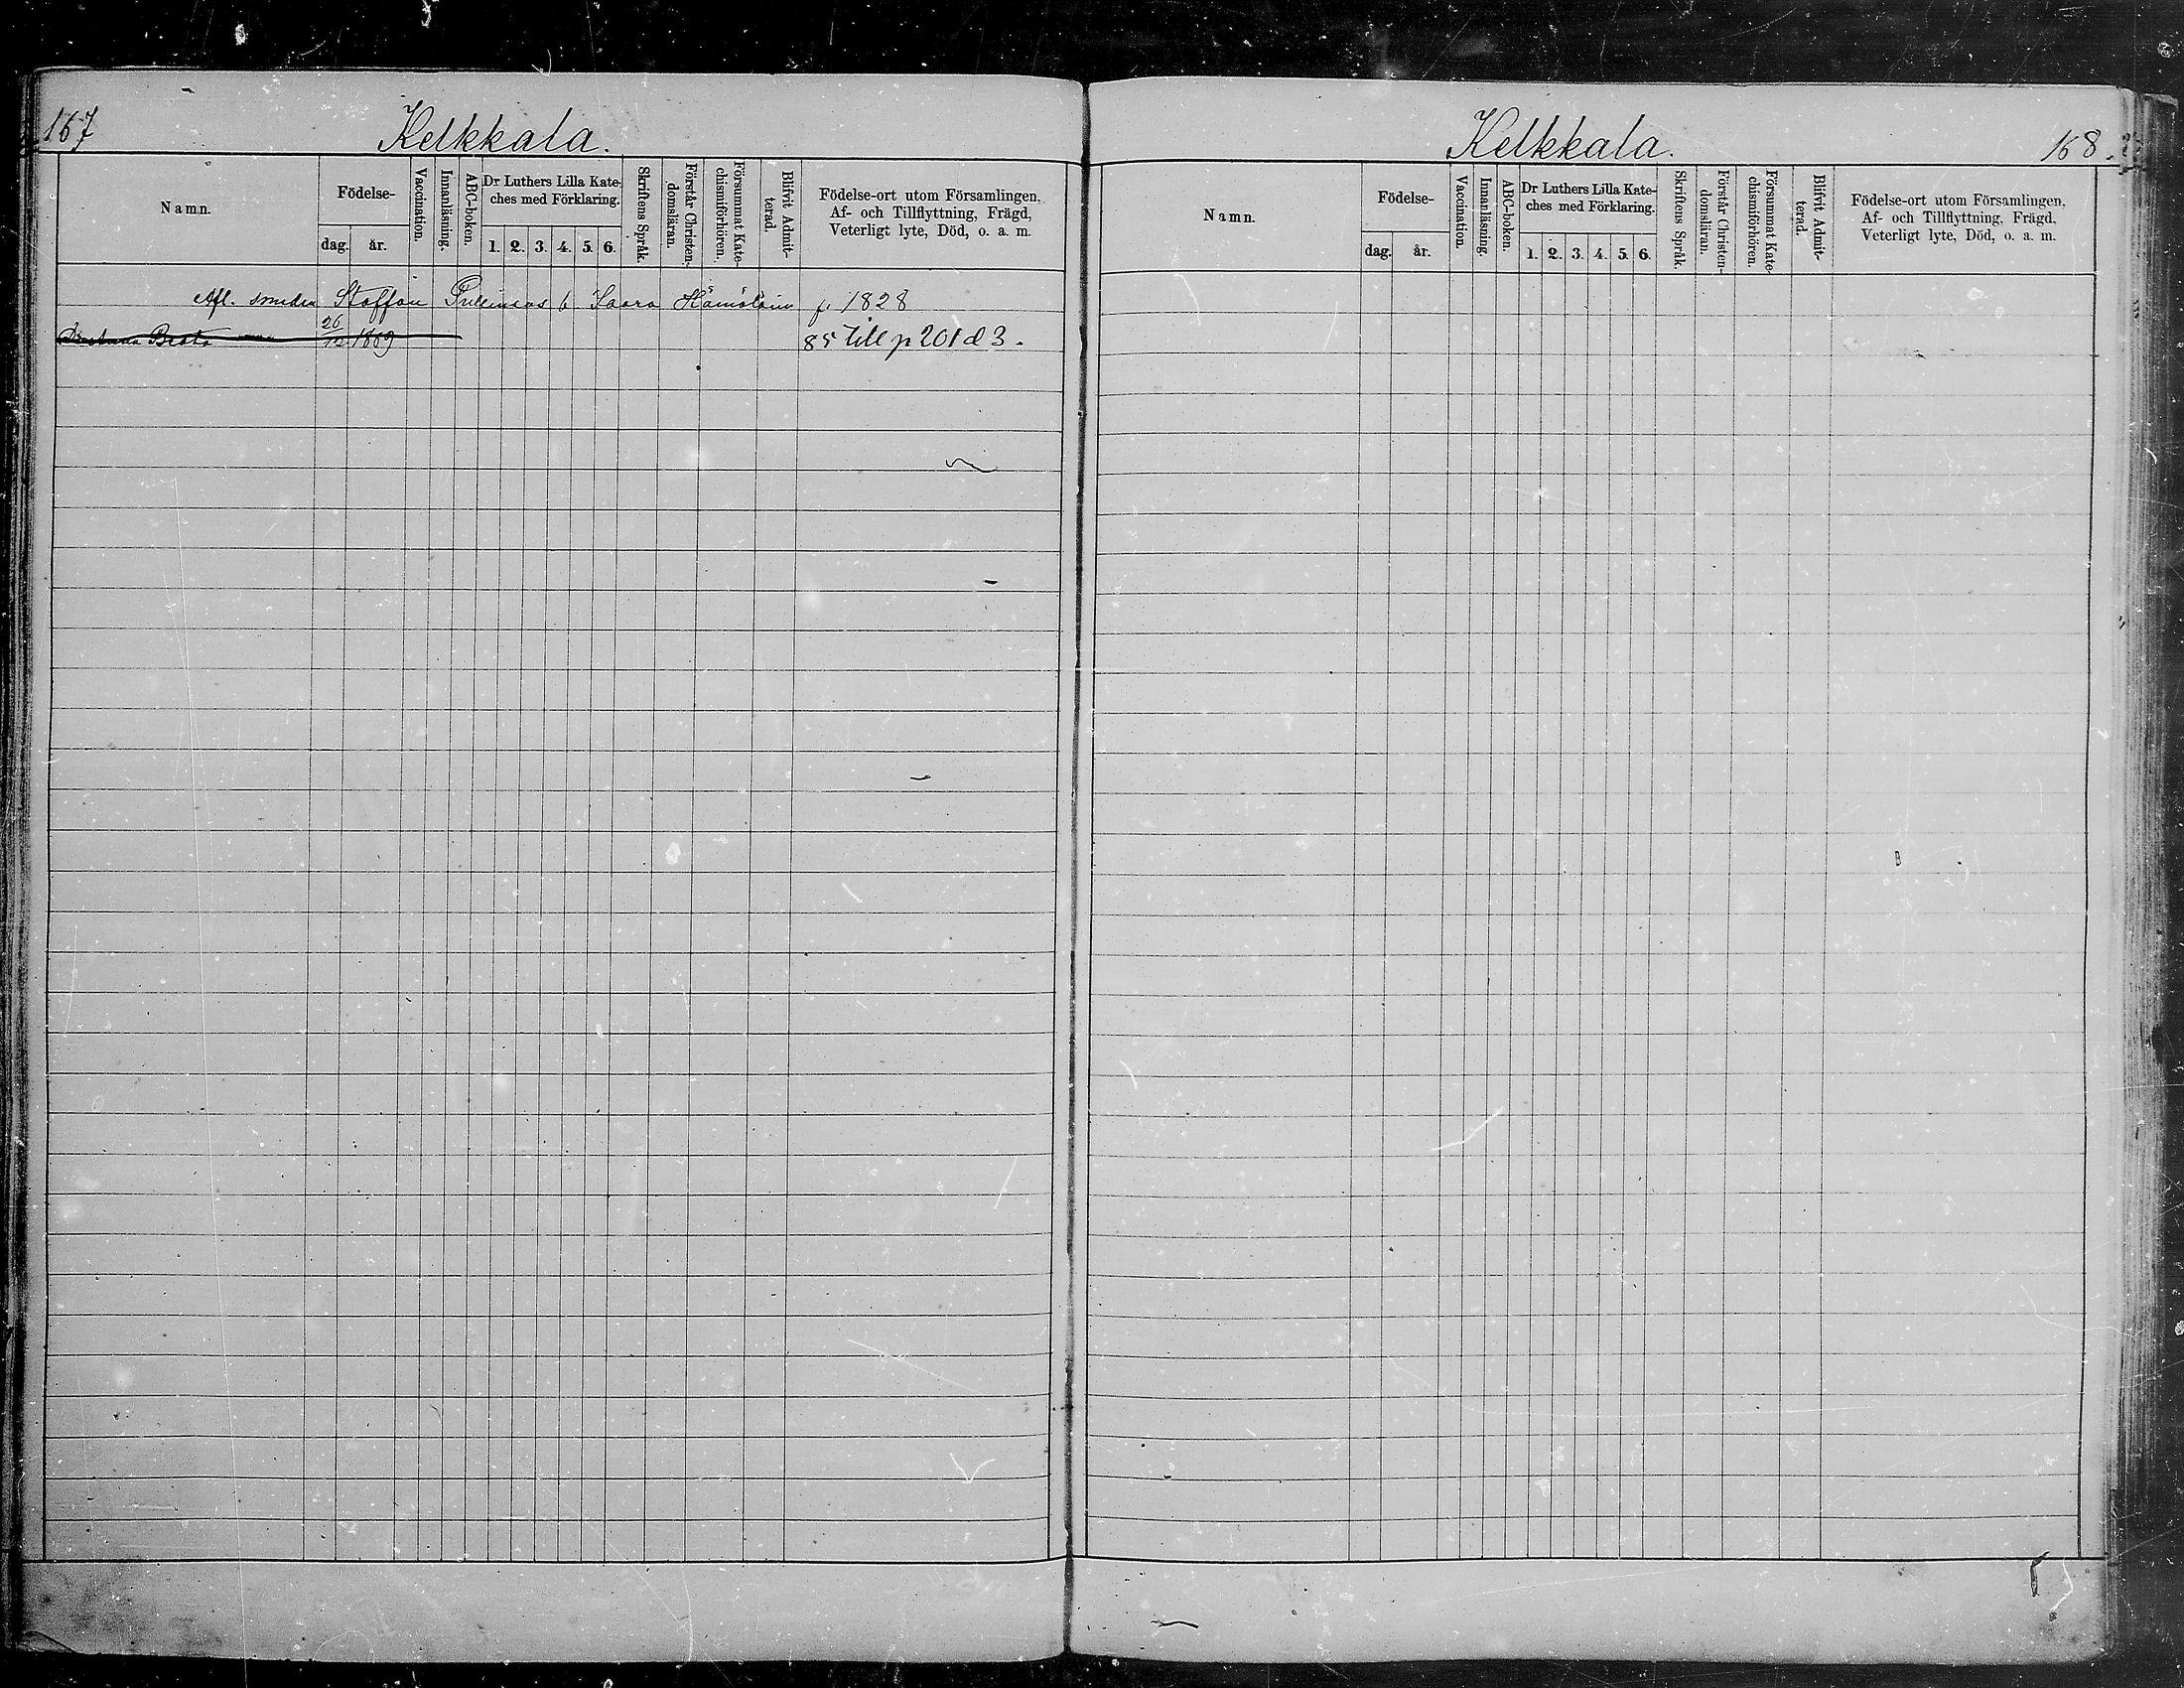 167
Kelkkala.
Namn.
Födelse-
dag.
år.
Vaccination.
Innanläsning.
ABC-boken.
Dr Luthers Lilla Kate-
ches med Förklaring.
1. 2. 3. 4. 5. 6.
Skriftens Språk.
Förstår Christen-
domsläran.
Försummat Kate-
chismiförhören.
Blifvit Admit-
terad.
Födelse-ort utom Församlingen,
Af- och Tillflyttning, Frägd,
Veterligt lyte, Död, o. a. m.
Afl. smeden Staffan b Saara Hämäläin f. 1828
Beata 26/12 1889 85 till p 201 d 3.
Kelkkala.
168.
Namn.
Födelse-
dag.
år.
Vaccination.
Innanläsning.
ABC-boken.
Dr Luthers Lilla Kate-
ches med Förklaring.
1. 2. 3. 4. 5. 6.
Skriftens Språk.
Förstår Christen-
domsläran.
Försummat Kate-
chismiförhören.
Blifvit Admit-
terad.
Födelse-ort utom Församlingen,
Af- och Tillflyttning, Frägd,
Veterligt lyte, Död, o. a. m.